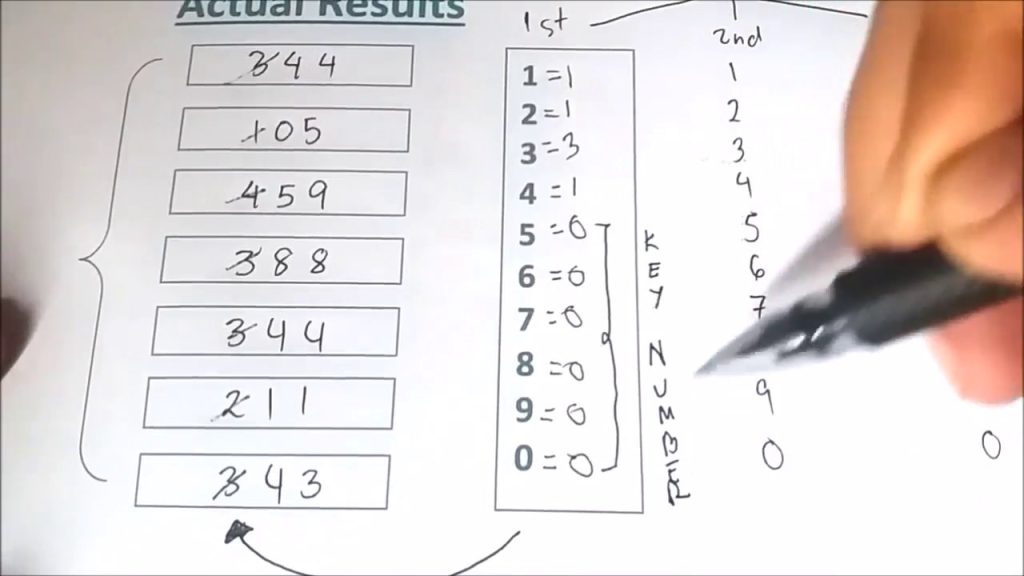 Actual Results
344
105
459
388
344
211
343
1st
1 = 1
2 = 1
3 = 3
4 = 1
5 = 0
6 = 0
7 = 0
8 = 0
9 = 0
0 = 0
KEY NUMBER
2nd
1
2
3
4
5
6
7
9
0
0